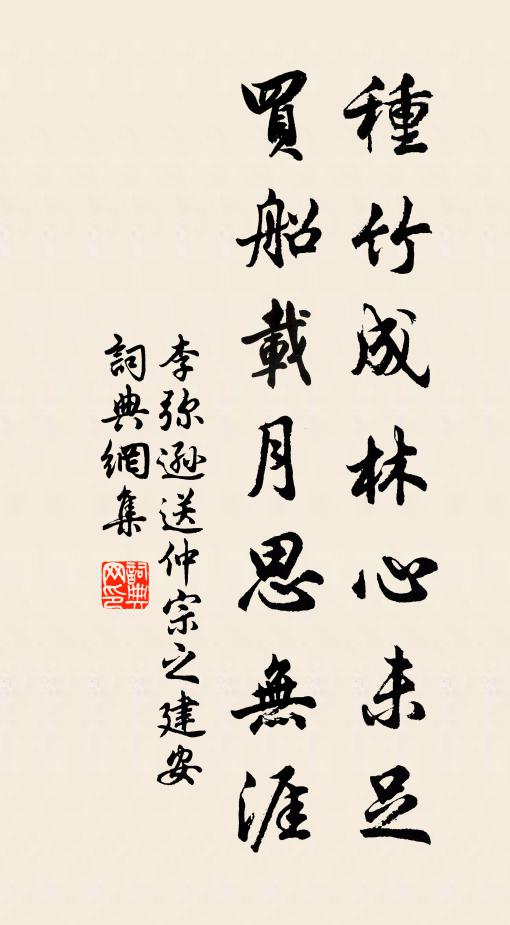 種竹成林心未足
買船載月思無涯
李弥遜送仲宗之建安
詞典網集
詞典
网印